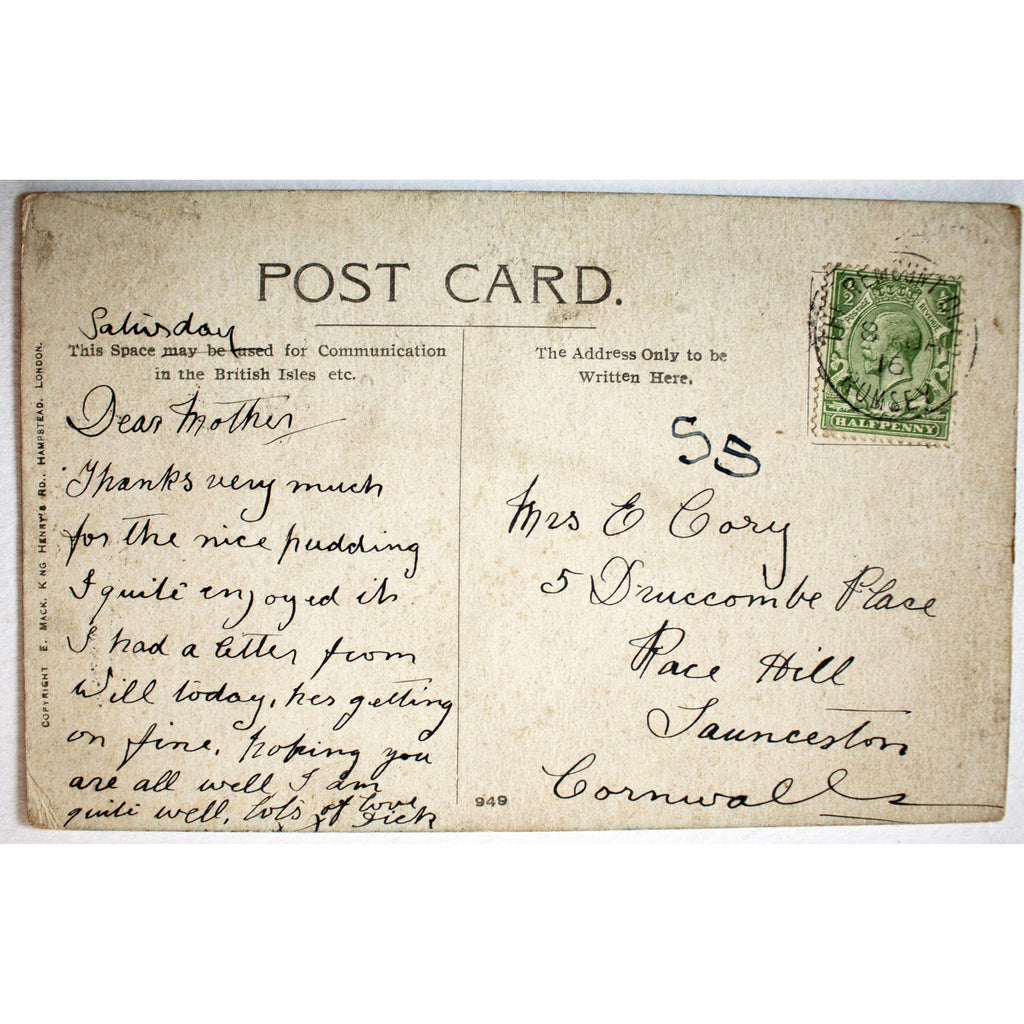 POST CARD.
Saturday
This Space may be used for Communication
in the British Isles etc.
Dear Mother
Thanks very much
for the nice pudding
I quite enjoyed it
I had a letter from
Will today, hes getting
on fine, hoping you
are all well I am
quite well, lots of love
Dick
COPYRIGHT E. MACK, KING HENRY'S RD., HAMPSTEAD, LONDON.
949
The Address Only to be
Written Here.
55
Mrs E Cory
5 Druccombe Place
Race Hill
Launceston
Cornwall
REMOUNT
16
ROMSEY
HALFPENNY